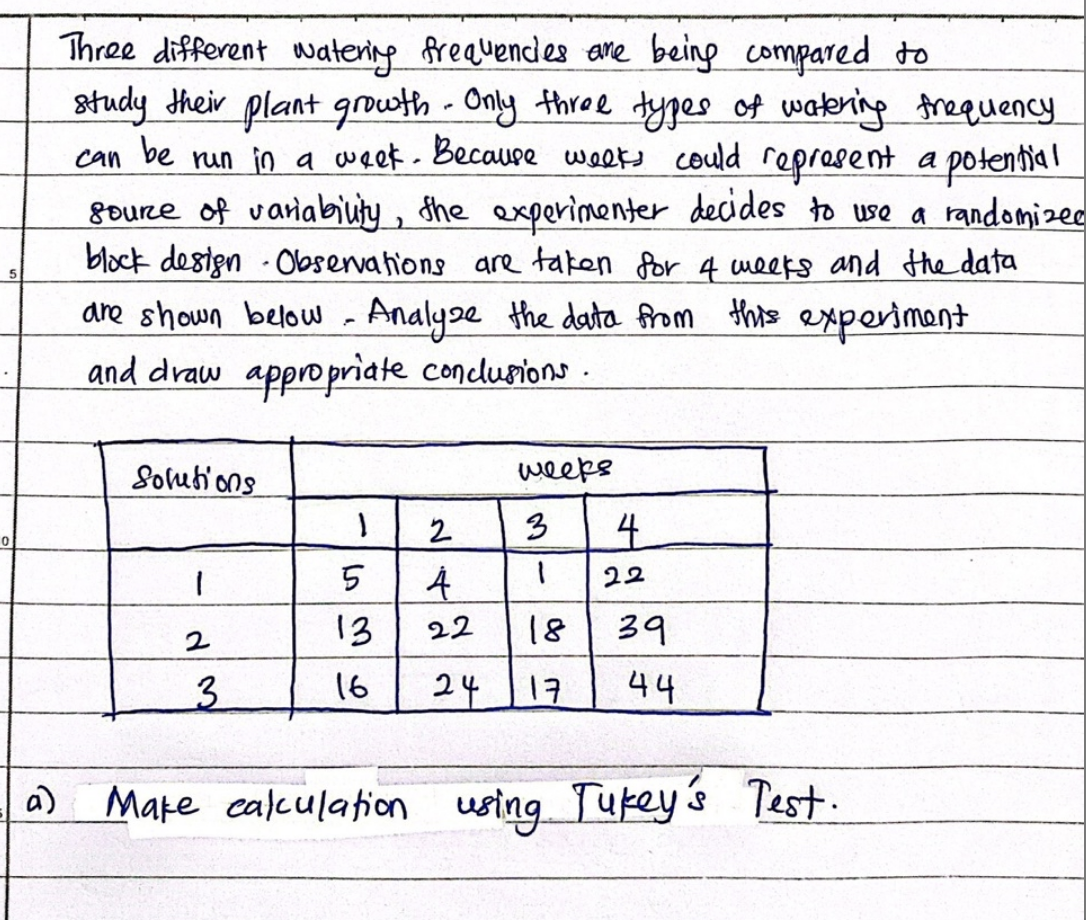 Three different watering frequencies are being compared to
study their plant growth. Only three types of watering frequency
can be run in a week. Because weeks could represent a potential
source of variability, the experimenter decides to use a randomized
block design. Observations are taken for 4 weeks and the data
5
are shown below. Analyze the data from this experiment
and draw appropriate conclusions.
Solutions weeks
1 2 3 4
0
1 5 4 1 22
2 13 22 18 39
3 16 24 17 44
a) Make calculation using Tukey's Test.